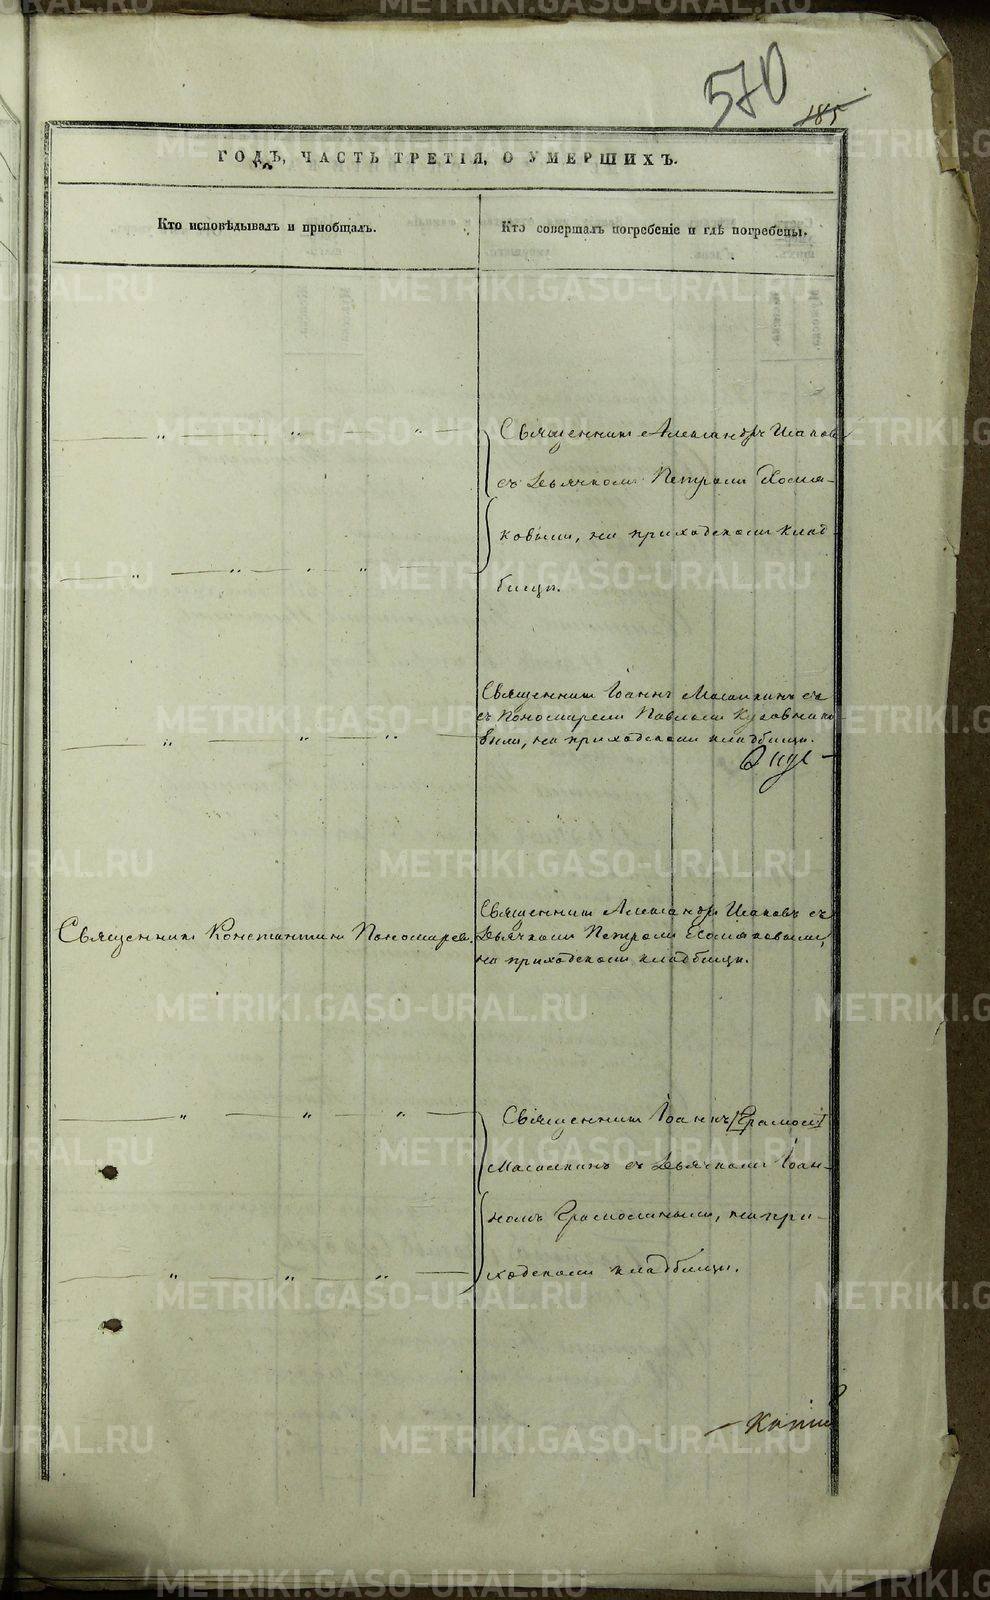 570
185
ГОДЪ, ЧАСТЬ ТРЕТІЯ, О УМЕРШИХЪ.
Кто исповѣдывалъ и пріобщалъ.
Кто совершалъ погребеніе и гдѣ погребены.
Священникъ Александръ
съ Дьячкомъ Петромъ Хомя-
ковымъ, на приходскомъ клад
бищѣ.
Священникъ Іоаннъ
съ Пономаремъ Павломъ
вымъ, на приходскомъ кладбищѣ.
Священникъ Константинъ Пономаревъ.
Священникъ Александръ съ
Дьячкомъ Петромъ Хомяковымъ,
на приходскомъ кладбищѣ.
Священникъ Іоаннъ
съ Дьячкомъ Іоан-
номъ на при-
ходскомъ кладбищѣ.
METRIKI.GASO-URAL.RU